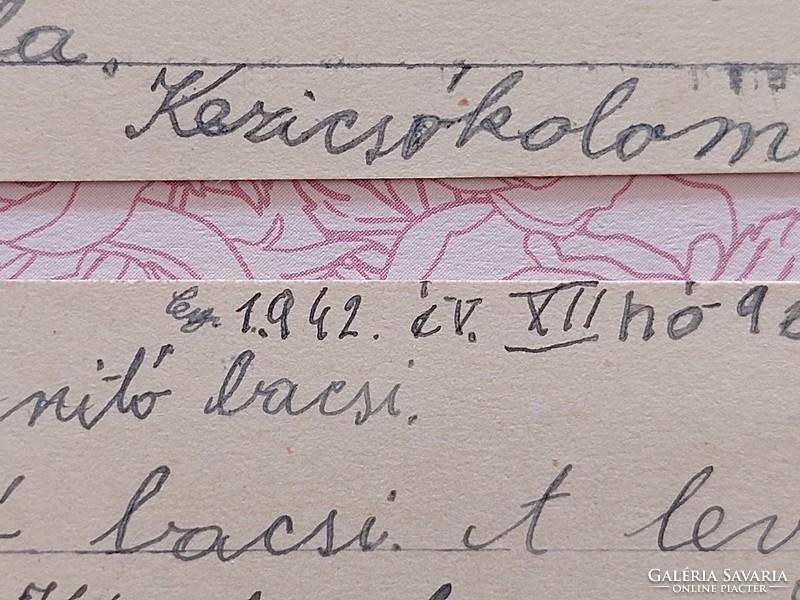 la.
Kezicsókolom
1.942. év. XII hó 9
nító bacsi.
bacsi. A lev
GALÉRIA SAVARIA
ONLINE PIACTÉR